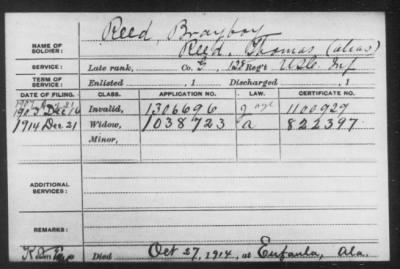 Reed, Brayboy
NAME OF SOLDIER: Reed, Thomas (alias)
SERVICE: Late rank, Co. G, 128 Reg't U.S.C. Inf
TERM OF SERVICE: Enlisted , 1 Discharged , 1
DATE OF FILING. CLASS. APPLICATION NO. LAW. CERTIFICATE NO.
Dec 16 Invalid, 1306696 1100929
1914 Dec. 21 Widow, 1038723 a 822397
Minor,
ADDITIONAL SERVICES:
REMARKS:
Died Oct 27, 1914, at Eufaula, Ala.